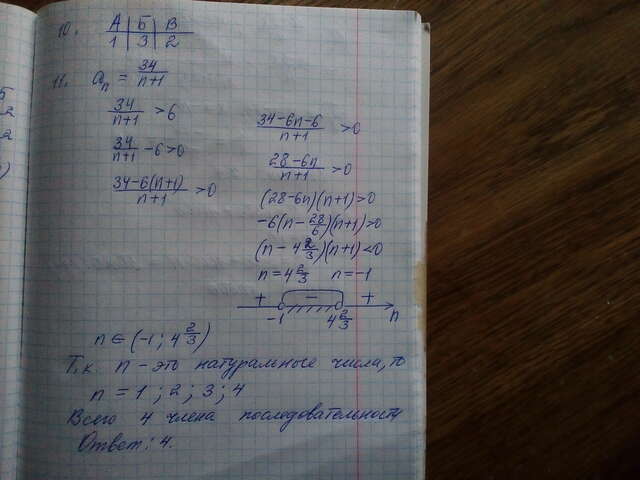 10. А | Б | В
1 | 3 | 2
11. aₙ = 34/(n+1)
34/(n+1) > 6
34/(n+1) - 6 > 0
(34-6(n+1))/(n+1) > 0
(34-6n-6)/(n+1) > 0
(28-6n)/(n+1) > 0
(28-6n)(n+1) > 0
-6(n - 28/6)(n+1) > 0
(n - 4 2/3)(n+1) < 0
n = 4 2/3 n = -1
+ - +
-1 4 2/3 n
n ∈ (-1; 4 2/3)
Т.к. n - это натуральные числа, то
n = 1; 2; 3; 4
Всего 4 члена последовательности
Ответ: 4.